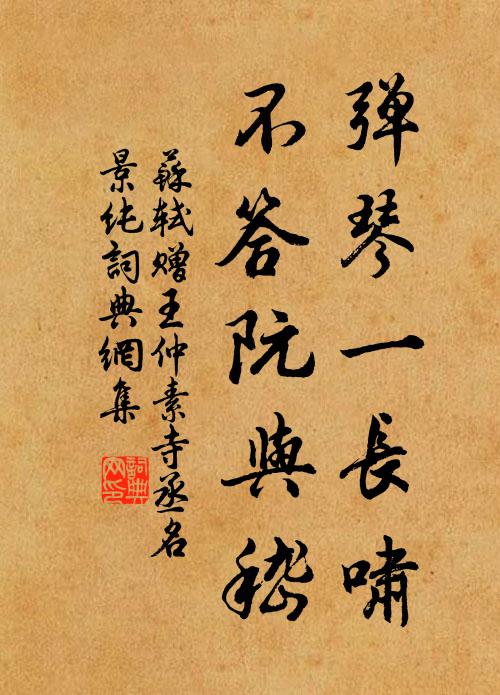 弹琴一長嘯
不答阮與嵇
蘇軾贈王仲素寺丞名
景純詞典網集
詞典
网印